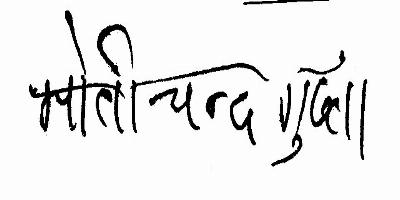 मोतीचन्द गुप्ता